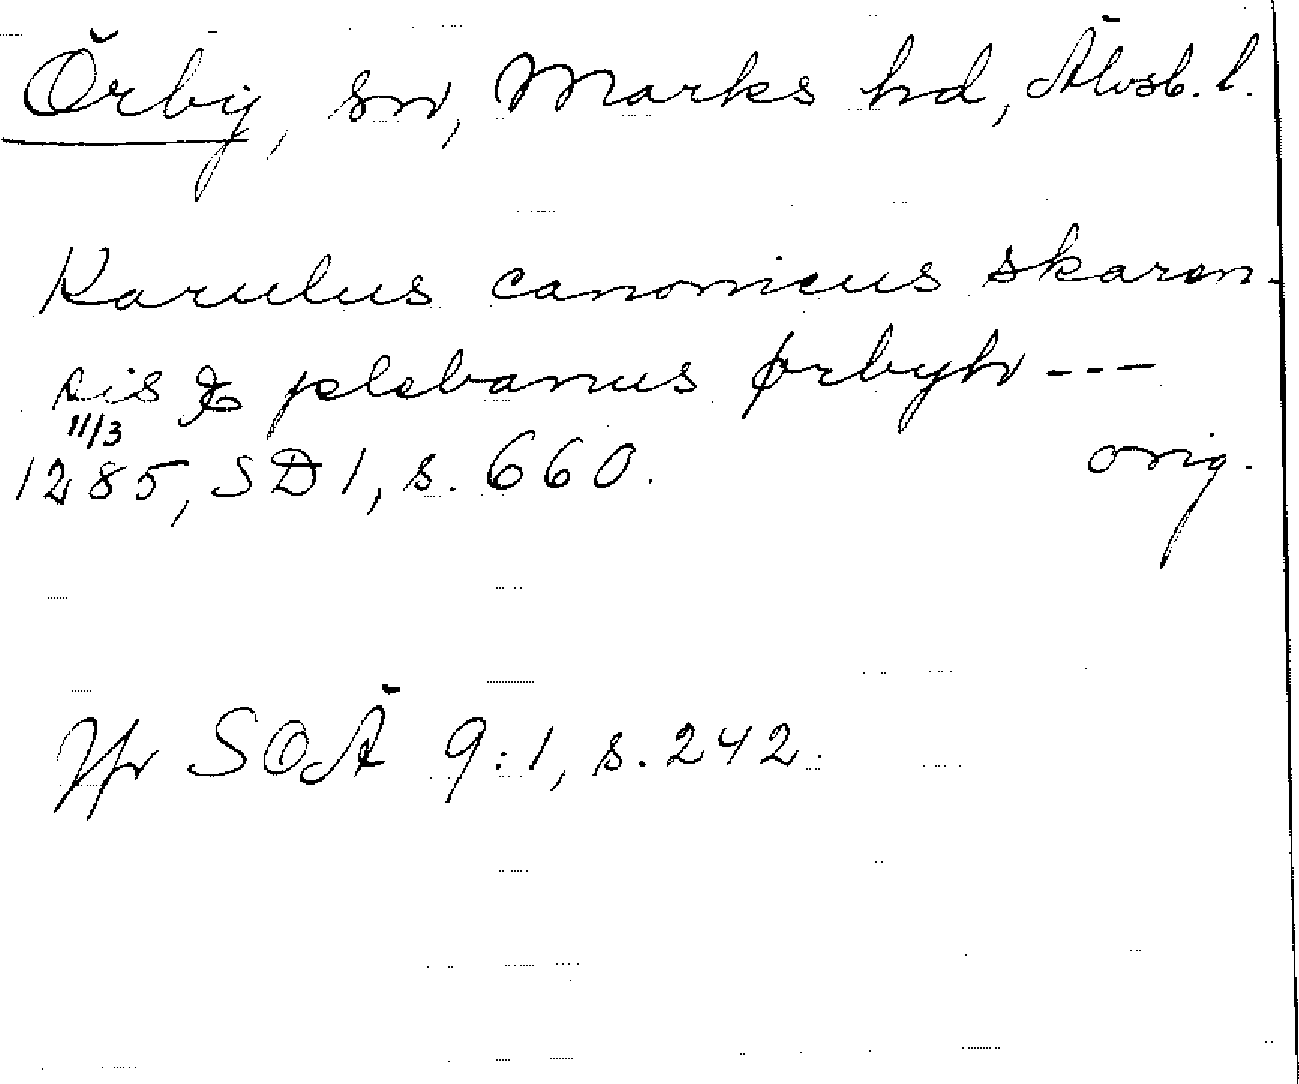 Örby, sn, Marks hd, Älvsb. l.
Karulus canonicus skaren-
sis & plebanus ørbyhr ---
11/3
1285, SD 1, s. 660. orig.
Jfr SOÄ 9:1, s. 242.